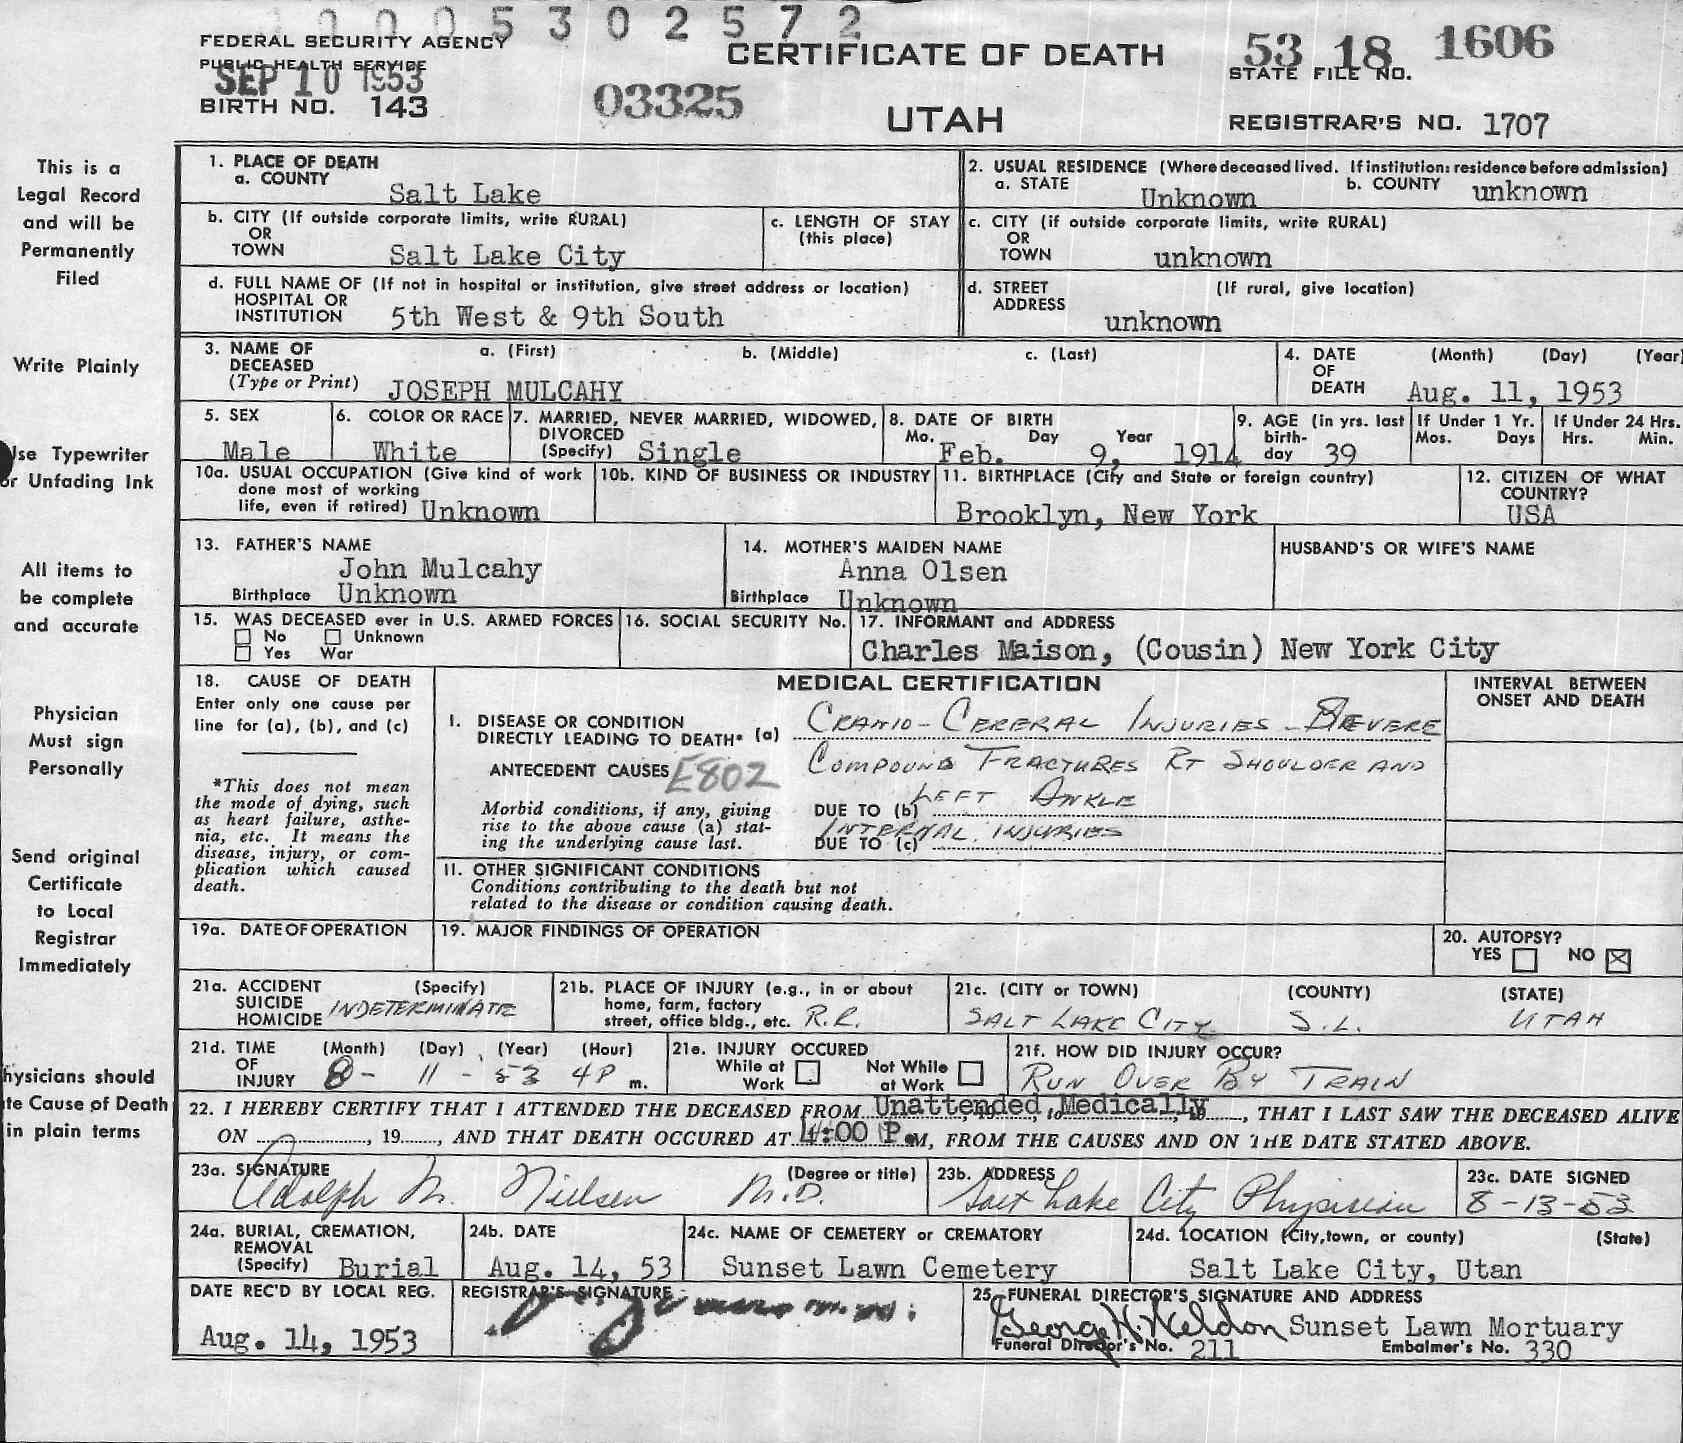 0005302572
FEDERAL SECURITY AGENCY
PUBLIC HEALTH SERVICE
SEP 10 1953
BIRTH NO. 143
03325
CERTIFICATE OF DEATH
UTAH
53 18 1606
STATE FILE NO.
REGISTRAR'S NO. 1707
This is a
Legal Record
and will be
Permanently
Filed
Write Plainly
Use Typewriter
or Unfading Ink
All items to
be complete
and accurate
Physician
Must sign
Personally
Send original
Certificate
to Local
Registrar
Immediately
hysicians should
te Cause of Death
in plain terms
1. PLACE OF DEATH
a. COUNTY
Salt Lake
2. USUAL RESIDENCE (Where deceased lived. If institution: residence before admission)
a. STATE Unknown b. COUNTY unknown
b. CITY (If outside corporate limits, write RURAL)
OR
TOWN Salt Lake City
c. LENGTH OF STAY
(this place)
c. CITY (if outside corporate limits, write RURAL)
OR
TOWN unknown
d. FULL NAME OF (If not in hospital or institution, give street address or location)
HOSPITAL OR
INSTITUTION 5th West & 9th South
d. STREET (If rural, give location)
ADDRESS
unknown
3. NAME OF a. (First) b. (Middle) c. (Last)
DECEASED
(Type or Print) JOSEPH MULCAHY
4. DATE (Month) (Day) (Year)
OF
DEATH Aug. 11, 1953
5. SEX
Male
6. COLOR OR RACE
White
7. MARRIED, NEVER MARRIED, WIDOWED,
DIVORCED
(Specify) Single
8. DATE OF BIRTH
Mo. Day Year
Feb. 9, 1914
9. AGE (in yrs. last
birth-
day 39
If Under 1 Yr.
Mos. Days
If Under 24 Hrs.
Hrs. Min.
10a. USUAL OCCUPATION (Give kind of work
done most of working
life, even if retired) Unknown
10b. KIND OF BUSINESS OR INDUSTRY
11. BIRTHPLACE (City and State or foreign country)
Brooklyn, New York
12. CITIZEN OF WHAT
COUNTRY?
USA
13. FATHER'S NAME
John Mulcahy
Birthplace Unknown
14. MOTHER'S MAIDEN NAME
Anna Olsen
Birthplace Unknown
HUSBAND'S OR WIFE'S NAME
15. WAS DECEASED ever in U.S. ARMED FORCES
No Unknown
Yes War
16. SOCIAL SECURITY No.
17. INFORMANT and ADDRESS
Charles Maison, (Cousin) New York City
18. CAUSE OF DEATH
Enter only one cause per
line for (a), (b), and (c)
*This does not mean
the mode of dying, such
as heart failure, asthe-
nia, etc. It means the
disease, injury, or com-
plication which caused
death.
MEDICAL CERTIFICATION
INTERVAL BETWEEN
ONSET AND DEATH
I. DISEASE OR CONDITION
DIRECTLY LEADING TO DEATH* (a) CRANIO-CEREBRAL INJURIES - SEVERE
ANTECEDENT CAUSES E802 COMPOUND FRACTURES RT SHOULDER AND
Morbid conditions, if any, giving
rise to the above cause (a) stat-
ing the underlying cause last.
DUE TO (b) LEFT ANKLE
INTERNAL INJURIES
DUE TO (c)
II. OTHER SIGNIFICANT CONDITIONS
Conditions contributing to the death but not
related to the disease or condition causing death.
19a. DATE OF OPERATION
19. MAJOR FINDINGS OF OPERATION
20. AUTOPSY?
YES NO X
21a. ACCIDENT (Specify)
SUICIDE
HOMICIDE INDETERMINATE
21b. PLACE OF INJURY (e.g., in or about
home, farm, factory
street, office bldg., etc. R.R.
21c. (CITY or TOWN) (COUNTY) (STATE)
SALT LAKE CITY S.L. UTAH
21d. TIME (Month) (Day) (Year) (Hour)
OF
INJURY 8- 11- 53 4P m.
21e. INJURY OCCURED
While at
Work
Not While
at Work
21f. HOW DID INJURY OCCUR?
RUN OVER BY TRAIN
22. I HEREBY CERTIFY THAT I ATTENDED THE DECEASED FROM Unattended, 19, to Medically, 19, THAT I LAST SAW THE DECEASED ALIVE
ON, 19, AND THAT DEATH OCCURED AT 4:00 P.M, FROM THE CAUSES AND ON THE DATE STATED ABOVE.
23a. SIGNATURE (Degree or title)
Adolph M. Nielsen M.D.
23b. ADDRESS
Salt Lake City Physician
23c. DATE SIGNED
8-13-53
24a. BURIAL, CREMATION,
REMOVAL
(Specify) Burial
24b. DATE
Aug. 14, 53
24c. NAME OF CEMETERY or CREMATORY
Sunset Lawn Cemetery
24d. LOCATION (City, town, or county) (State)
Salt Lake City, Utan
DATE REC'D BY LOCAL REG.
Aug. 14, 1953
REGISTRAR'S SIGNATURE
25. FUNERAL DIRECTOR'S SIGNATURE AND ADDRESS
George H. Weldon Sunset Lawn Mortuary
Funeral Director's No. 211 Embalmer's No. 330